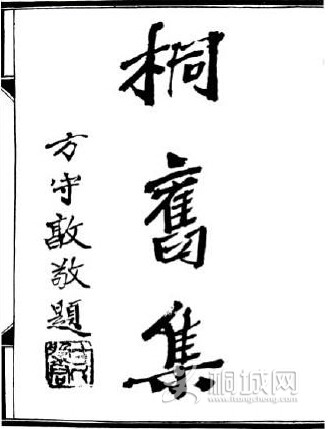 桐舊集
方守敦敬題
桐城网
www.tongcheng.com